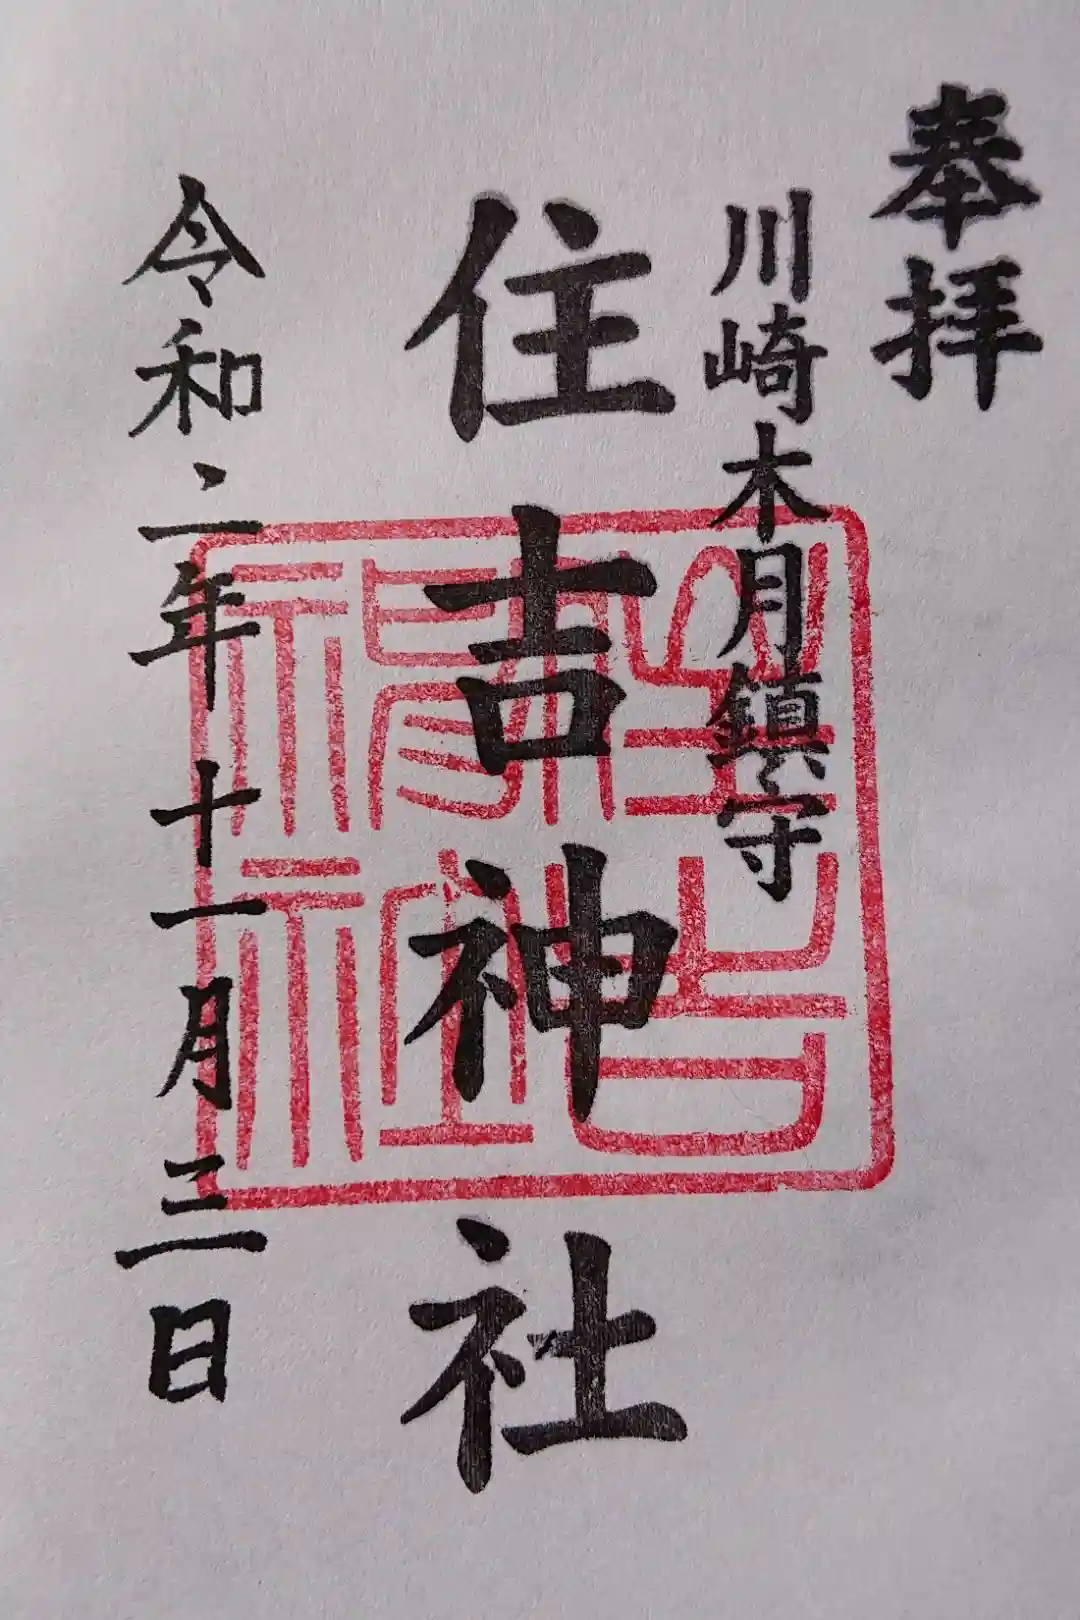 奉拝
川崎木月鎮守
住吉神社
令和二年十一月三日
住吉
神社